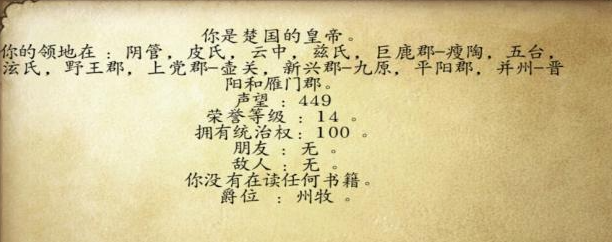 你是楚国的皇帝。
你的领地在：阴管，皮氏，云中，兹氏，巨鹿郡-瘿陶，五台，
泫氏，野王郡，上党郡-壶关，新兴郡-九原，平阳郡，并州-晋
阳和雁门郡。
声望：449
荣誉等级：14。
拥有统治权：100。
朋友：无。
敌人：无。
你没有在读任何书籍。
爵位 ：州牧。